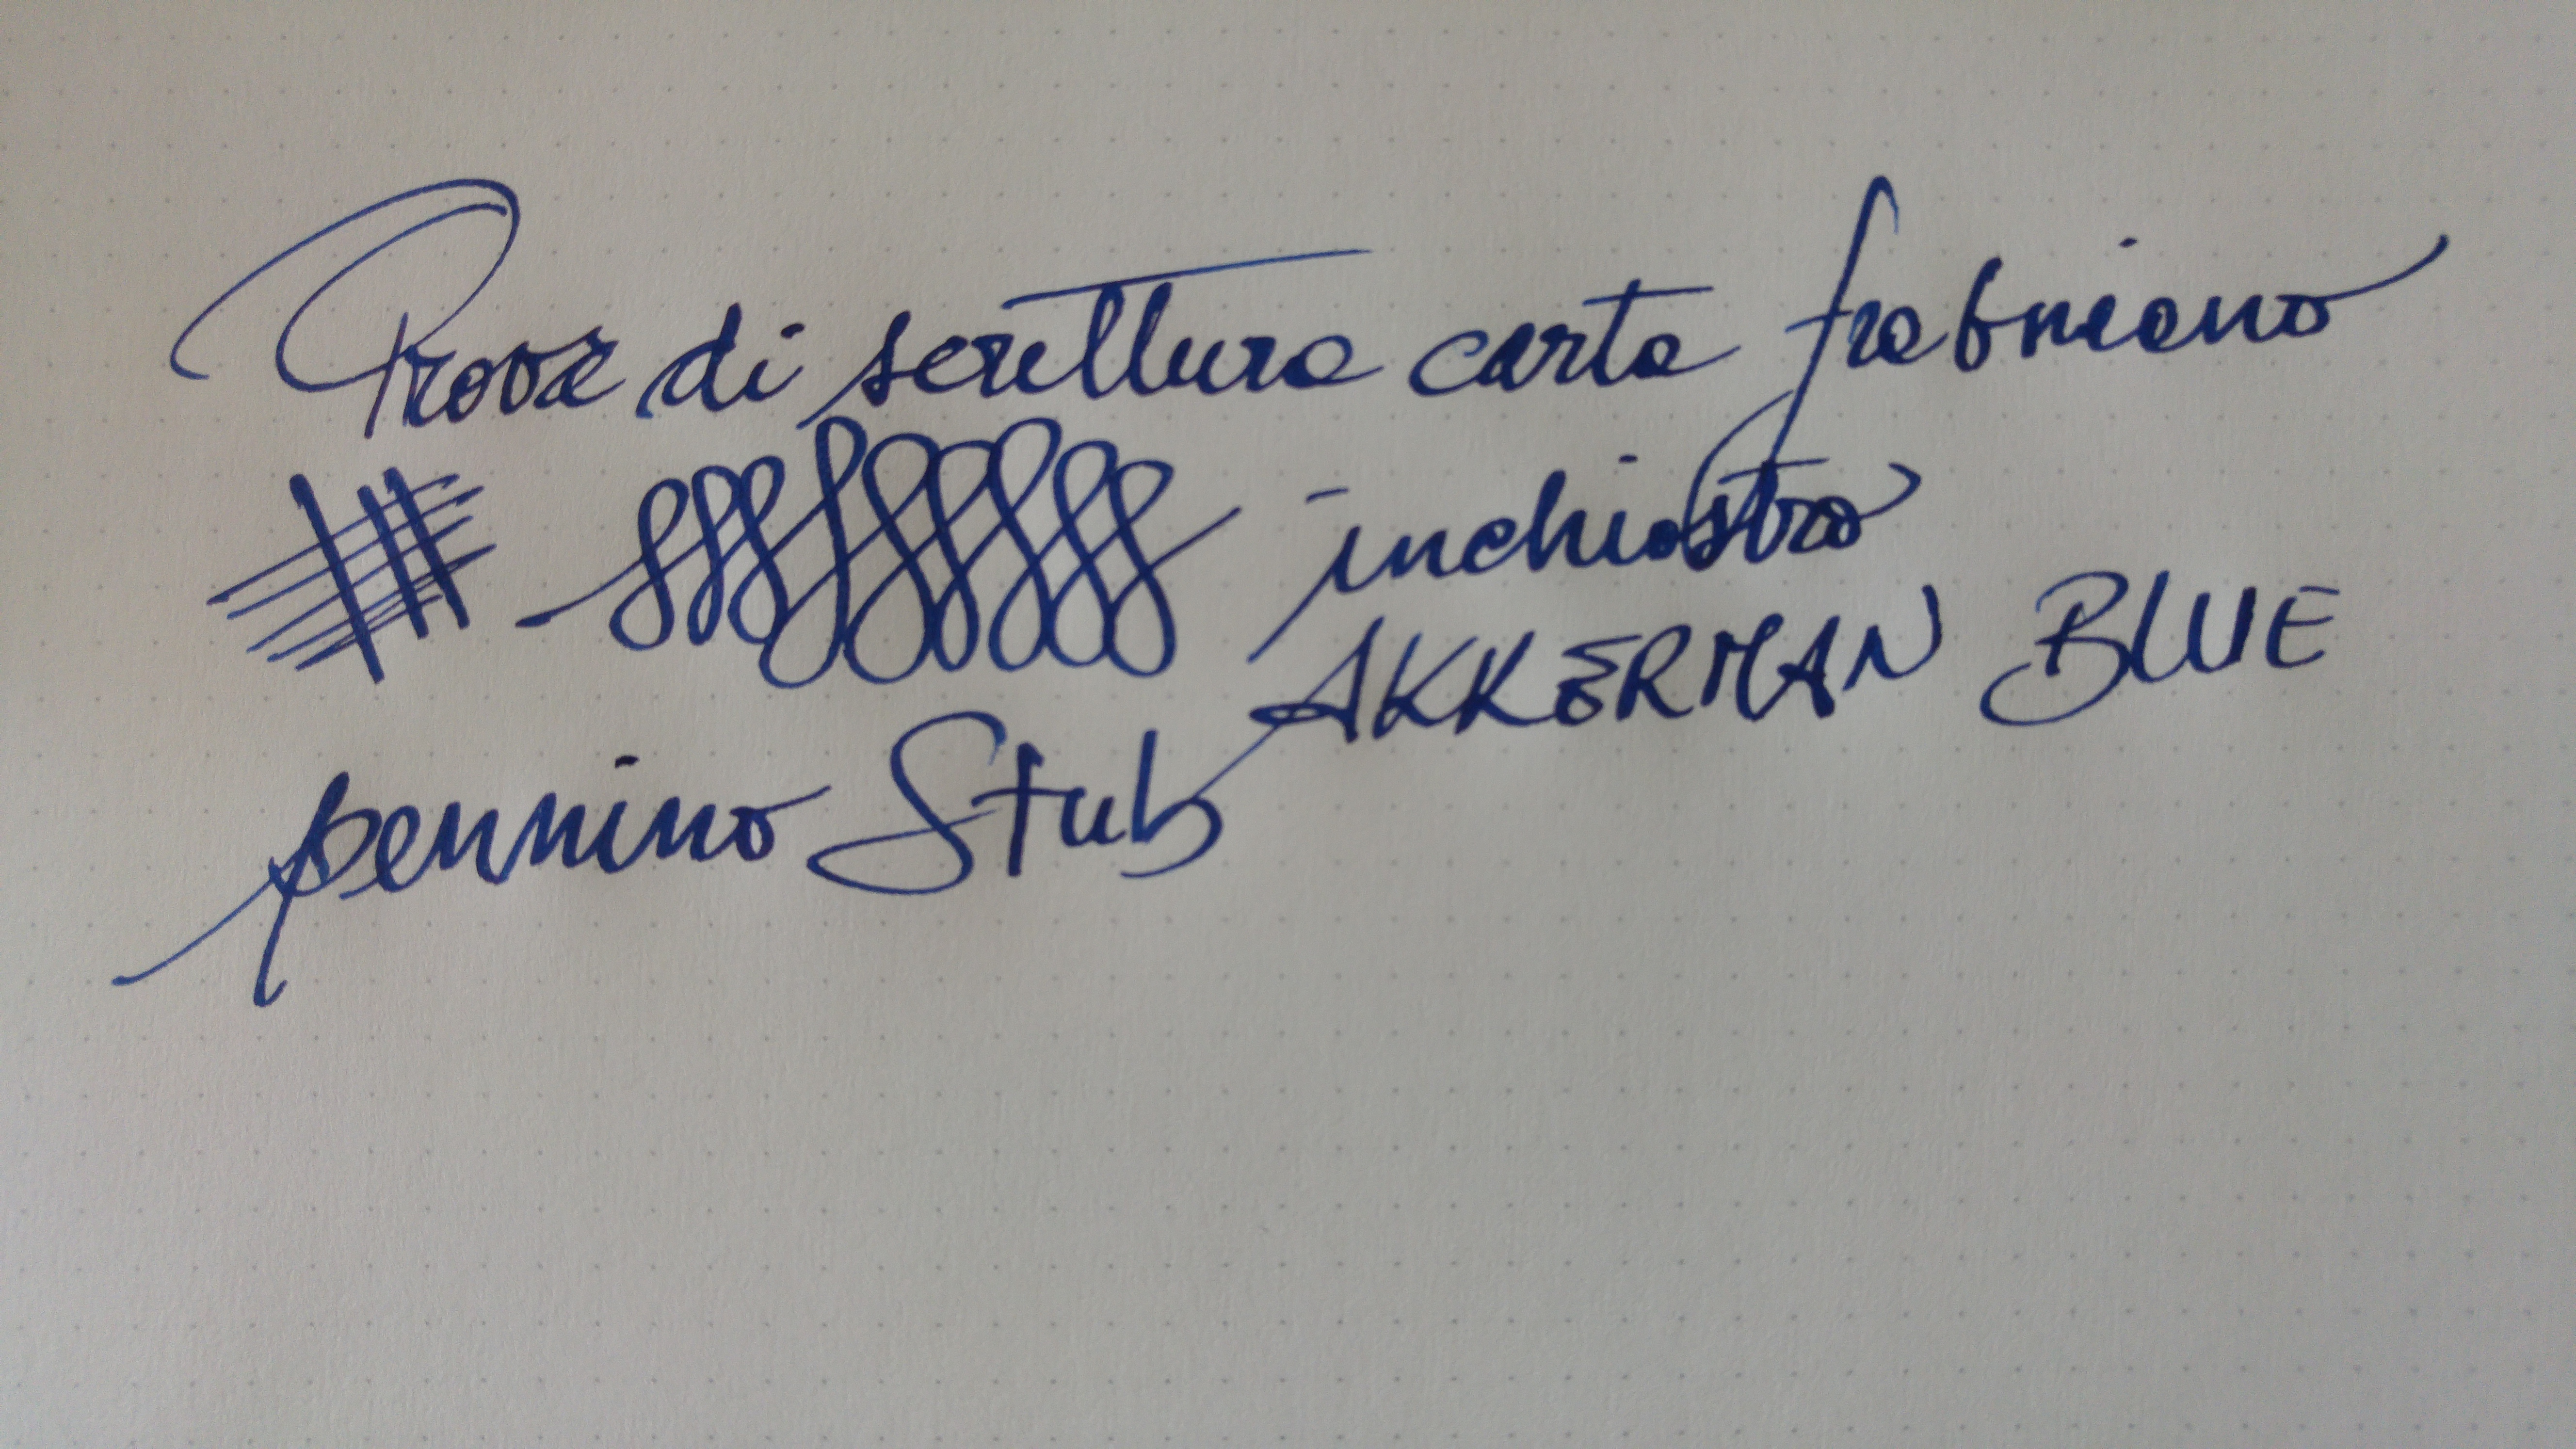 Prova di scrittura carta frabriano
inchiostro
AKKERMAN BLUE
pennino Stub